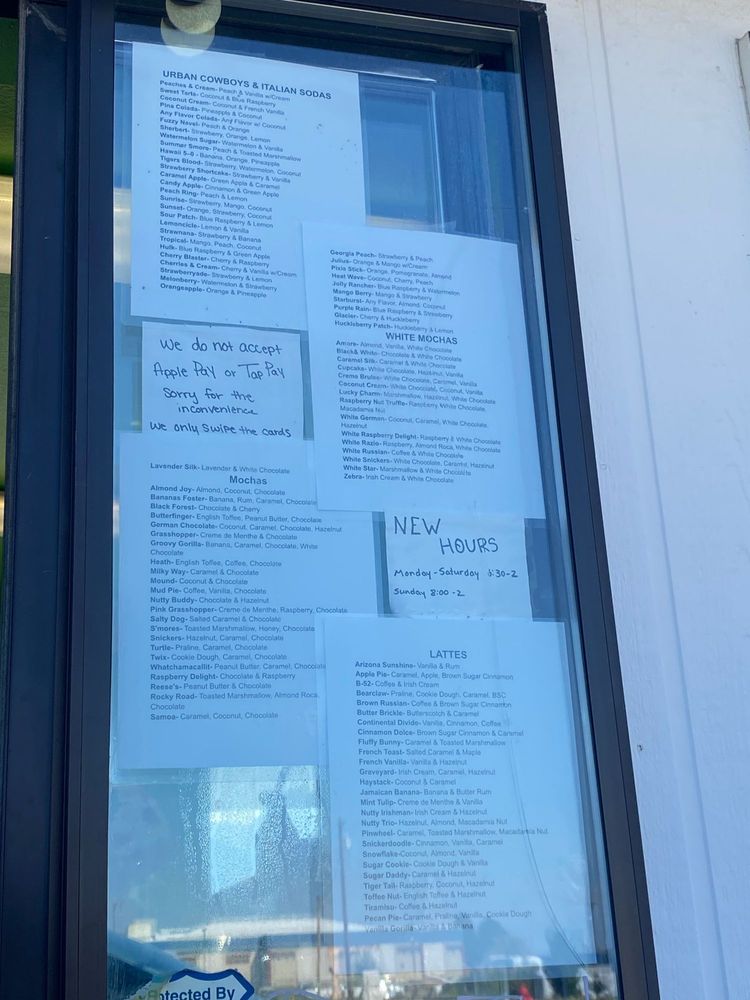 URBAN COWBOYS & ITALIAN SODAS
Peaches & Cream- Peach & Vanilla w/Cream
Sweet Tarts- Coconut & Blue Raspberry
Coconut Cream- Coconut & French Vanilla
Pina Colada- Pineapple & Coconut
Any Flavor Colada- Any Flavor w/ Coconut
Fuzzy Navel- Peach & Orange
Sherbert- Strawberry, Orange, Lemon
Watermelon Sugar- Watermelon & Vanilla
Summer Smore- Peach & Toasted Marshmallow
Hawaii 5-0 - Banana, Orange, Pineapple
Tigers Blood- Strawberry, Watermelon, Coconut
Strawberry Shortcake- Strawberry & Vanilla
Caramel Apple- Green Apple & Caramel
Candy Apple- Cinnamon & Green Apple
Peach Ring- Peach & Lemon
Sunrise- Strawberry, Mango, Coconut
Sunset- Orange, Strawberry, Coconut
Sour Patch- Blue Raspberry & Lemon
Lemoncicle- Lemon & Vanilla
Strawnana- Strawberry & Banana
Tropical- Mango, Peach, Coconut
Hulk- Blue Raspberry & Green Apple
Cherry Blaster- Cherry & Raspberry
Cherries & Cream- Cherry & Vanilla w/Cream
Strawberryade- Strawberry & Lemon
Melonberry- Watermelon & Strawberry
Orangeapple- Orange & Pineapple
Georgia Peach- Strawberry & Peach
Julius- Orange & Mango w/Cream
Pixie Stick- Orange, Pomegranate, Almond
Heat Wave- Coconut, Cherry, Peach
Jolly Rancher- Blue Raspberry & Watermelon
Mango Berry- Mango & Strawberry
Starburst- Any Flavor, Almond, Coconut
Purple Rain- Blue Raspberry & Strawberry
Glacier- Cherry & Huckleberry
Huckleberry Patch- Huckleberry & Lemon
WHITE MOCHAS
Amore- Almond, Vanilla, White Chocolate
Black& White- Chocolate & White Chocolate
Caramel Silk- Caramel & White Chocolate
Cupcake- White Chocolate, Hazelnut, Vanilla
Creme Brulee- White Chocolate, Caramel, Vanilla
Coconut Cream- White Chocolate, Coconut, Vanilla
Lucky Charm- Marshmallow, Hazelnut, White Chocolate
Raspberry Nut Truffle- Raspberry White Chocolate,
Macadamia Nut
White German- Coconut, Caramel, White Chocolate,
Hazelnut
White Raspberry Delight- Raspberry & White Chocolate
White Razio- Raspberry, Almond Roca, White Chocolate
White Russian- Coffee & White Chocolate
White Snickers- White Chocolate, Caramel, Hazelnut
White Star- Marshmallow & White Chocolate
Zebra- Irish Cream & White Chocolate
We do not accept
Apple Pay or Tap Pay
Sorry for the
inconvenience
We only swipe the cards
Lavender Silk- Lavender & White Chocolate
Mochas
Almond Joy- Almond, Coconut, Chocolate
Bananas Foster- Banana, Rum, Caramel, Chocolate
Black Forest- Chocolate & Cherry
Butterfinger- English Toffee, Peanut Butter, Chocolate
German Chocolate- Coconut, Caramel, Chocolate, Hazelnut
Grasshopper- Creme de Menthe & Chocolate
Groovy Gorilla- Banana, Caramel, Chocolate, White
Chocolate
Heath- English Toffee, Coffee, Chocolate
Milky Way- Caramel & Chocolate
Mound- Coconut & Chocolate
Mud Pie- Coffee, Vanilla, Chocolate
Nutty Buddy- Chocolate & Hazelnut
Pink Grasshopper- Creme de Menthe, Raspberry, Chocolate
Salty Dog- Salted Caramel & Chocolate
S'mores- Toasted Marshmallow, Honey, Chocolate
Snickers- Hazelnut, Caramel, Chocolate
Turtle- Praline, Caramel, Chocolate
Twix- Cookie Dough, Caramel, Chocolate
Whatchamacallit- Peanut Butter, Caramel, Chocolate
Raspberry Delight- Chocolate & Raspberry
Reese's- Peanut Butter & Chocolate
Rocky Road- Toasted Marshmallow, Almond Roca,
Chocolate
Samoa- Caramel, Coconut, Chocolate
NEW
HOURS
Monday-Saturday :30-2
Sunday 8:00-2
LATTES
Arizona Sunshine- Vanilla & Rum
Apple Pie- Caramel, Apple, Brown Sugar Cinnamon
B-52- Coffee & Irish Cream
Bearclaw- Praline, Cookie Dough, Caramel, BSC
Brown Russian- Coffee & Brown Sugar Cinnamon
Butter Brickle- Butterscotch & Caramel
Continental Divide- Vanilla, Cinnamon, Coffee
Cinnamon Dolce- Brown Sugar Cinnamon & Caramel
Fluffy Bunny- Caramel & Toasted Marshmallow
French Toast- Salted Caramel & Maple
French Vanilla- Vanilla & Hazelnut
Graveyard- Irish Cream, Caramel, Hazelnut
Haystack- Coconut & Caramel
Jamaican Banana- Banana & Butter Rum
Mint Tulip- Creme de Menthe & Vanilla
Nutty Irishman- Irish Cream & Hazelnut
Nutty Trio- Hazelnut, Almond, Macadamia Nut
Pinwheel- Caramel, Toasted Marshmallow, Macadamia Nut
Snickerdoodle- Cinnamon, Vanilla, Caramel
Snowflake-Coconut, Almond, Vanilla
Sugar Cookie- Cookie Dough & Vanilla
Sugar Daddy- Caramel & Hazelnut
Tiger Tail- Raspberry, Coconut, Hazelnut
Toffee Nut- English Toffee & Hazelnut
Tiramisu- Coffee & Hazelnut
Pecan Pie- Caramel, Praline, Vanilla, Cookie Dough
Vanilla Gorilla- Vanilla & Banana
Protected By